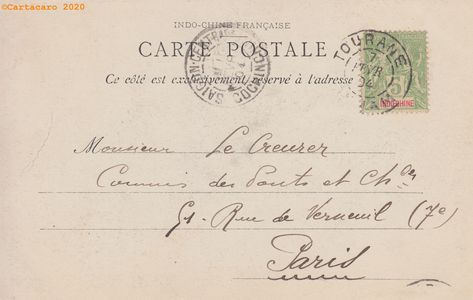 © Cartacaro 2020
INDO-CHINE FRANÇAISE
CARTE POSTALE
Ce côté est exclusivement réservé à l'adresse
SAIGON-CENTRAL
COCHINCHINE
TOURANE
7
FEVR
04
ANNAM
5
INDO-CHINE
Monsieur Le Creurer
Commis des Ponts et Ch ées
51 - Rue de Verneuil (7e)
Paris